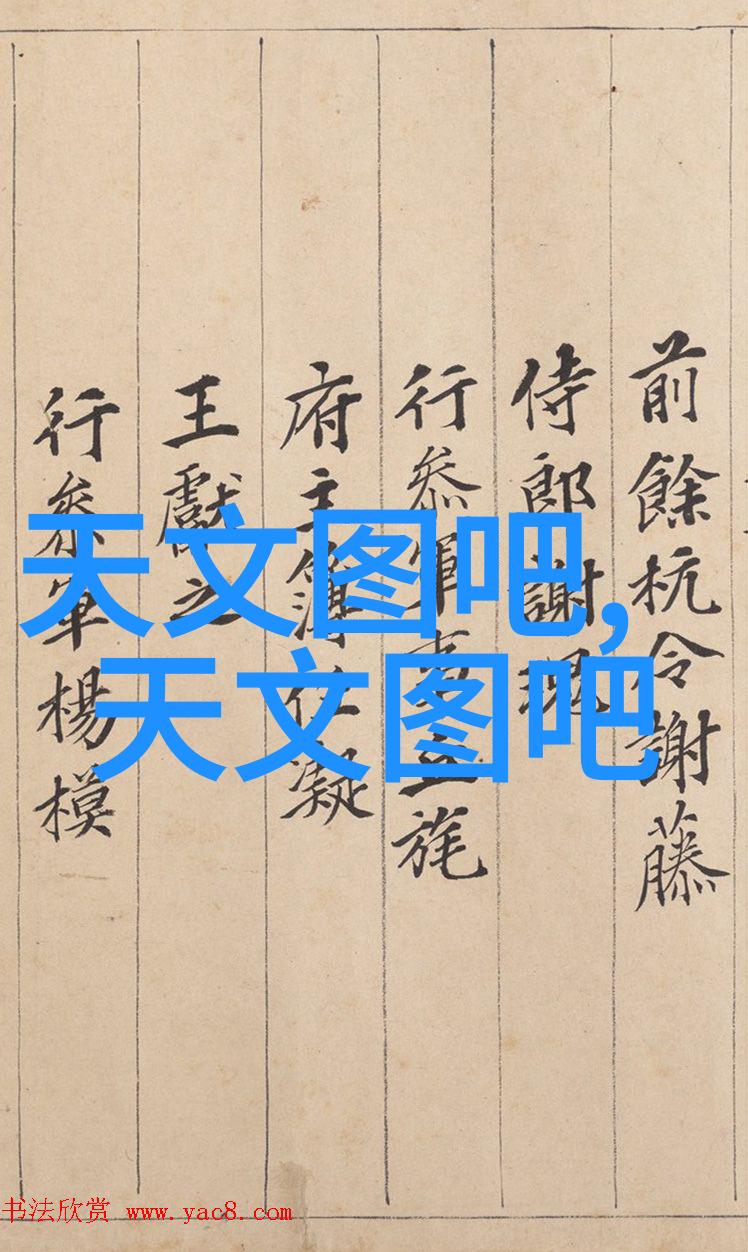 前餘杭令謝藤
侍郎謝瑰
行叅軍
旄
府主簿任凝
王獻之
行叅軍楊模
天文图吧,
天文图吧
书法欣赏 www.yac8.com